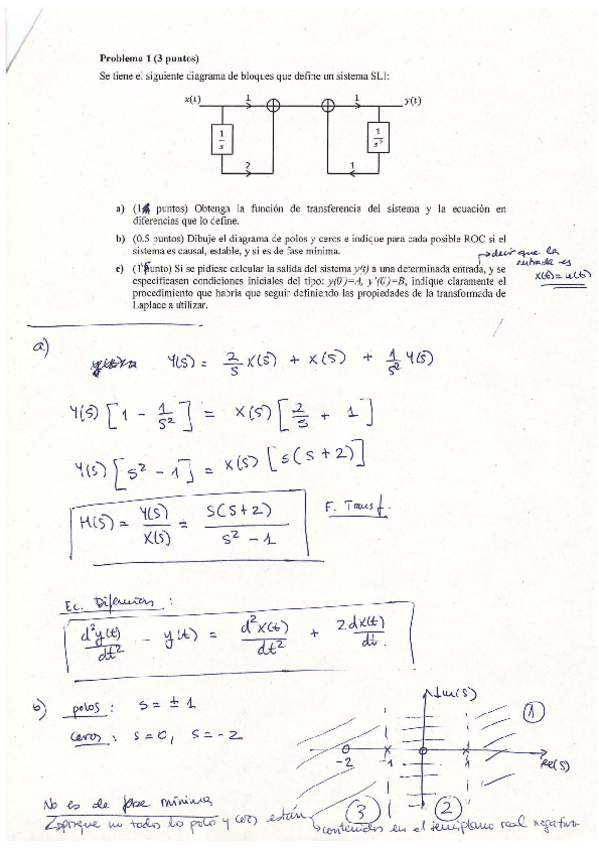 Problema 1 (3 puntos)
Se tiene el siguiente diagrama de bloques que define un sistema SLI:
x(t) 1 1 y(t)
1/s 1/s²
2 1
a) (1 puntos) Obtenga la función de transferencia del sistema y la ecuación en
diferencias que lo define.
b) (0.5 puntos) Dibuje el diagrama de polos y ceros e indique para cada posible ROC si el
sistema es causal, estable, y si es de fase mínima.
→ decir que la
entrada es
x(t)=u(t)
c) (1'5 punto) Si se pidiese calcular la salida del sistema y(t) a una determinada entrada, y se
especificasen condiciones iniciales del tipo: y(0⁻)=A, y'(0⁻)=B, indique claramente el
procedimiento que habría que seguir definiendo las propiedades de la transformada de
Laplace a utilizar.
a)
Y(s) = 2/s X(s) + X(s) + 1/s² Y(s)
Y(s) [1 - 1/s²] = X(s) [2/s + 1]
Y(s) [s² - 1] = X(s) [s(s+2)]
H(s) = Y(s)/X(s) = s(s+2)/(s² - 1) F. Transf.
Ec. Diferencias :
d²y(t)/dt² - y(t) = d²x(t)/dt² + 2dx(t)/dt.
b) polos : s = ± 1
ceros : s=0, s=-2
Im(s)
1
-2 -1 1 Re(s)
3 2
No es de fase mínima
porque no todos los polo y ceros están
→ contenidos en el semiplano real negativo